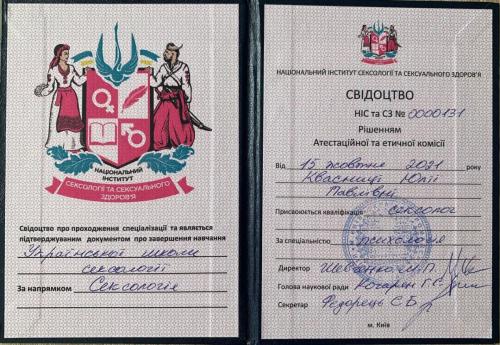 НАЦІОНАЛЬНИЙ
ІНСТИТУТ
СЕКСОЛОГІЇ ТА СЕКСУАЛЬНОГО
ЗДОРОВ'Я
Свідоцтво про проходження спеціалізації та являється
підтверджуваним документом про завершення навчання
Української школи
сексології
За напрямком Сексологія
НАЦІОНАЛЬНИЙ ІНСТИТУТ СЕКСОЛОГІЇ ТА СЕКСУАЛЬНОГО ЗДОРОВ'Я
СВІДОЦТВО
НІС та СЗ № 0000131
Рішенням
Атестаційної та етичної комісії
Від 15 жовтня 2021 року
Квасниці Юлії
Павлівні
Присвоюється кваліфікація сексолог
За спеціальністю психологія
Директор Шевченко М.П.
Голова наукової ради Кочарян Г.С.
Секретар Федорець С.Б.
м. Київ